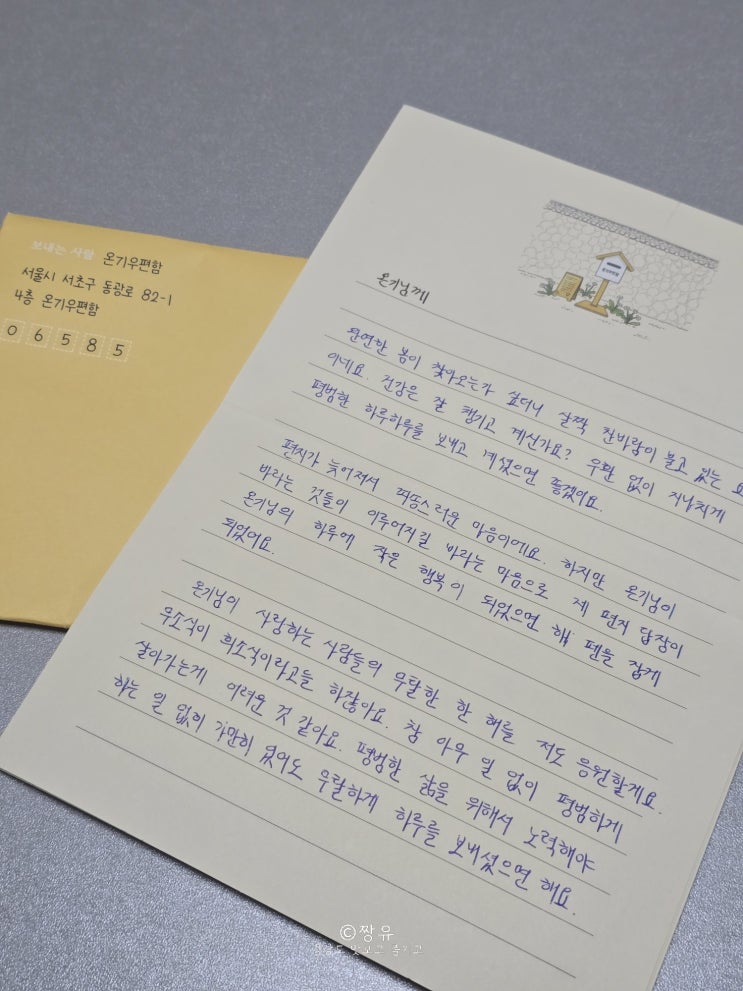 보내는 사람 온기우편함
서울시 서초구 동광로 82-1
4층 온기우편함
0 6 5 8 5
온기우편함
온기님께
완연한 봄이 찾아오는가 싶더니 살짝 찬바람이 불고 있는 요
이네요. 건강은 잘 챙기고 계신가요? 우환 없이 지나치게
평범한 하루하루를 보내고 계셨으면 좋겠어요.
편지가 늦어져서 죄송스러운 마음이에요. 하지만 온기님이
바라는 것들이 이루어지길 바라는 마음으로 제 편지 답장이
온기님의 하루에 작은 행복이 되었으면 해 펜을 잡게
되었어요.
온기님이 사랑하는 사람들의 무탈한 한 해를 저도 응원할게요.
무소식이 희소식이라고들 하잖아요. 참 아무 일 없이 평범하게
살아가는게 어려운 것 같아요. 평범한 삶을 위해서 노력해야
하는 일 없이 가만히 있어도 무탈하게 하루를 보내셨으면 해요.
©짱유
맛보고 즐기고